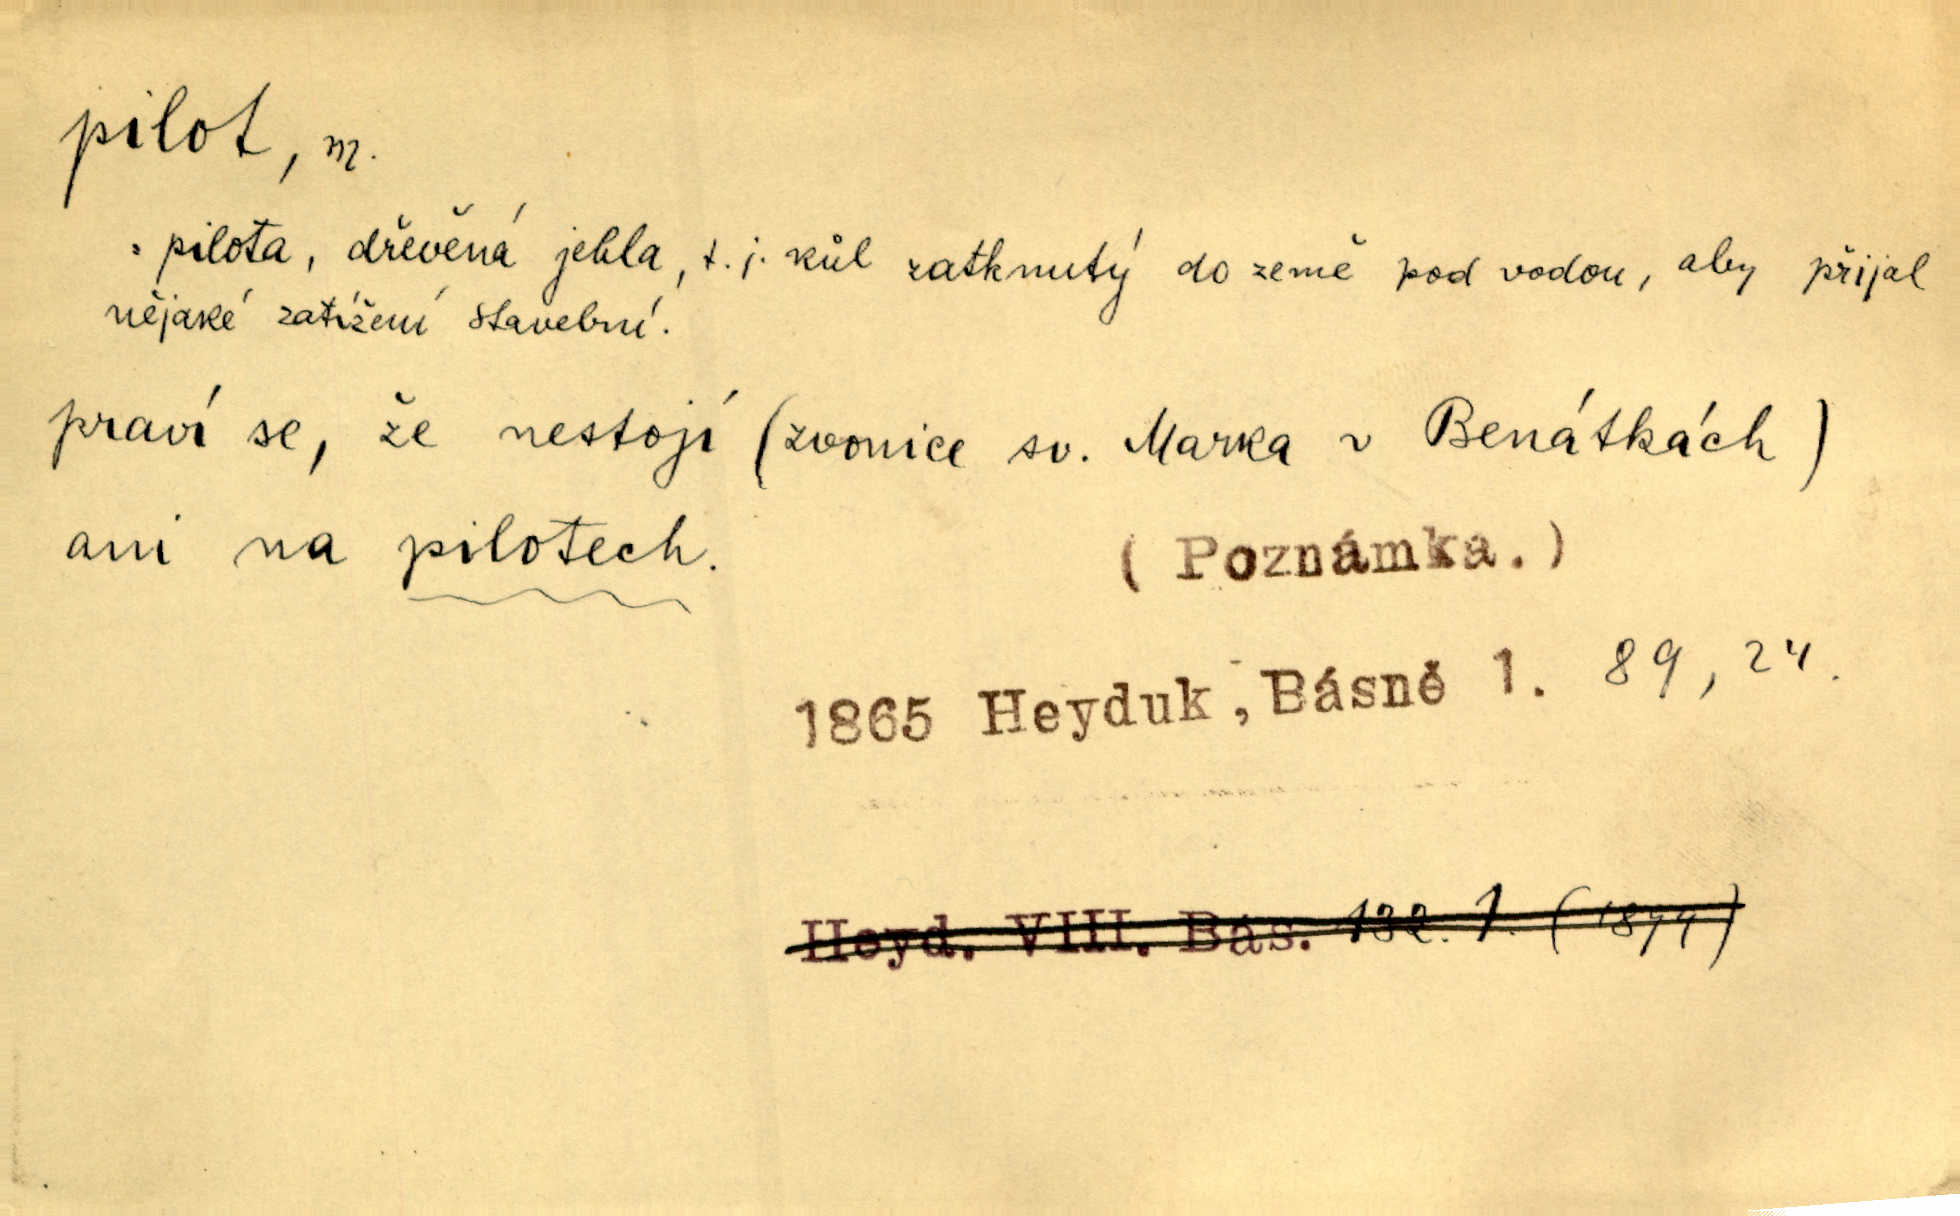 pilot, m.
= pilota, dřevěná jehla, t. j. kůl zatknutý do země pod vodou, aby přijal
nějaké zatížení stavební.
praví se, že nestojí (zvonice sv. Marka v Benátkách)
ani na pilotech.
( Poznámka.)
1865 Heyduk, Básně 1. 89, 24.
Heyd. VIII. Bás. 132. 1. (1899)